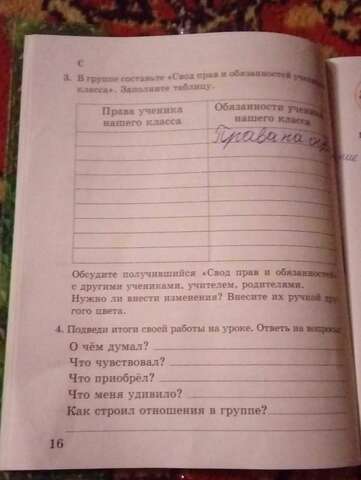 С
3. В группе составьте «Свод прав и обязанностей
класса». Заполните таблицу.
Права ученика
нашего класса
Обязанности
нашего класса
Права на
Обсудите получившийся «Свод прав и обязанностей»
с другими учениками, учителем, родителями.
Нужно ли внести изменения? Внесите их ручной дру
гого цвета.
4. Подведи итоги своей работы на уроке. Ответь на вопросы
О чём думал?
Что чувствовал?
Что приобрёл?
Что меня удивило?
Как строил отношения в группе?
16